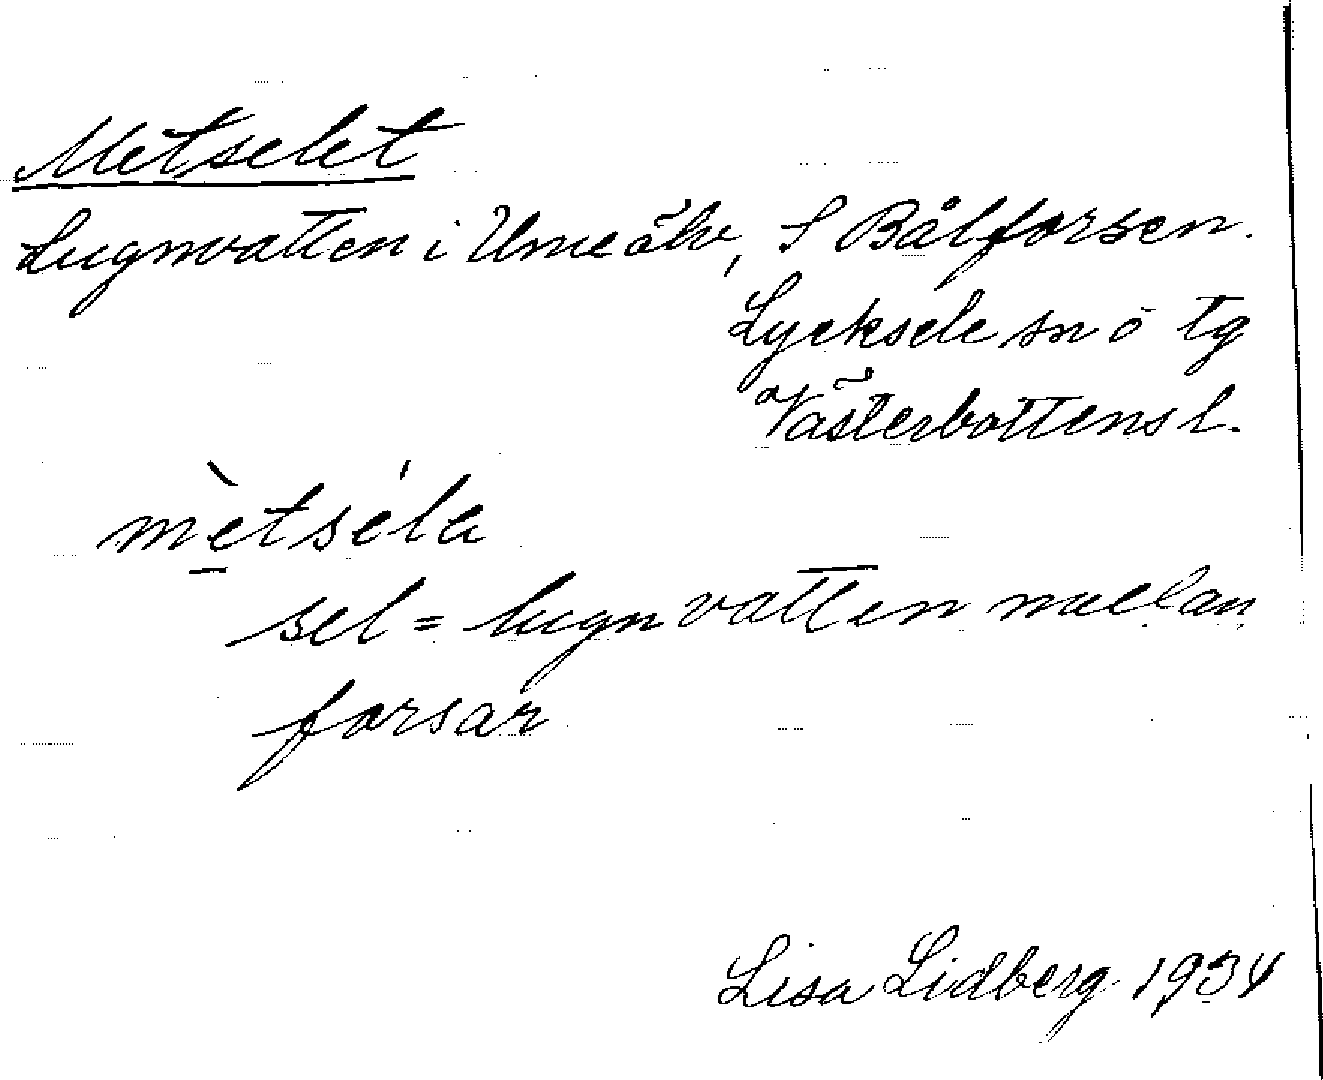 Metselet
Lugnvatten i Umeälv, S Bålforsen.
Lycksele sn o tg
Västerbottens l.
mètséla
sel = lugnvatten mellan
forsar
Lisa Lidberg 1934